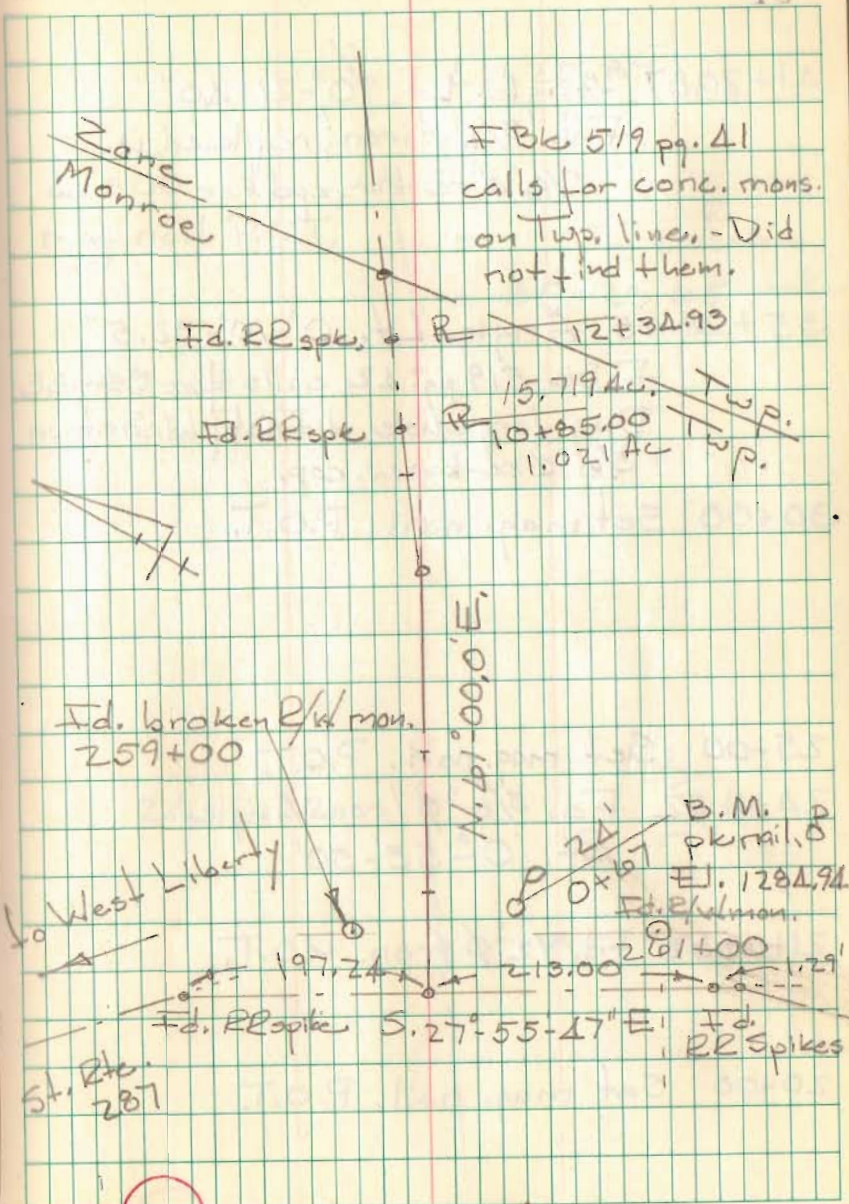 Zane
Monroe
F Bk 519 pg. 41
calls for conc. mons.
on Twp. line. - Did
not find them.
Fd. RR spk.
12+34.93
15.719 Ac.
Fd. RR spk
10+85.00
1.021 Ac
Twp.
Twp.
Fd. broken R/W mon.
259+00
B.M.
pk nail,
24'
0+67
El. 1284.94
To West Liberty
Fd. R/W mon.
261+00
197.24
213.00
1.29'
Fd. RR spike
S. 27°-55-47" E.
Fd.
RR Spikes
St. Rte.
287